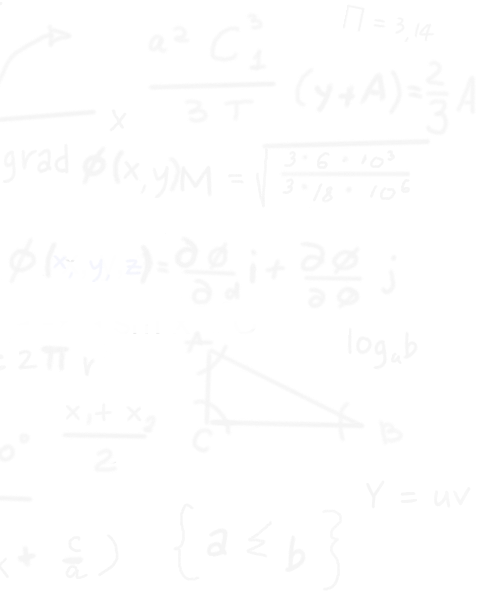 Π = 3,14
a² C₁³ / 3 T
(y + A) = 2/3 A
x
grad ϕ(x, y)
M = √(3 · 6 · 10³ / 3 · 18 · 10⁶)
ϕ(x, y, z) = ∂ϕ/∂d i + ∂ϕ/∂ϕ j
= 2π r
log_a b
A
C
B
0°
x₁ + x₂ / 2
Y = uv
x + c/a )
{ a ≤ b }